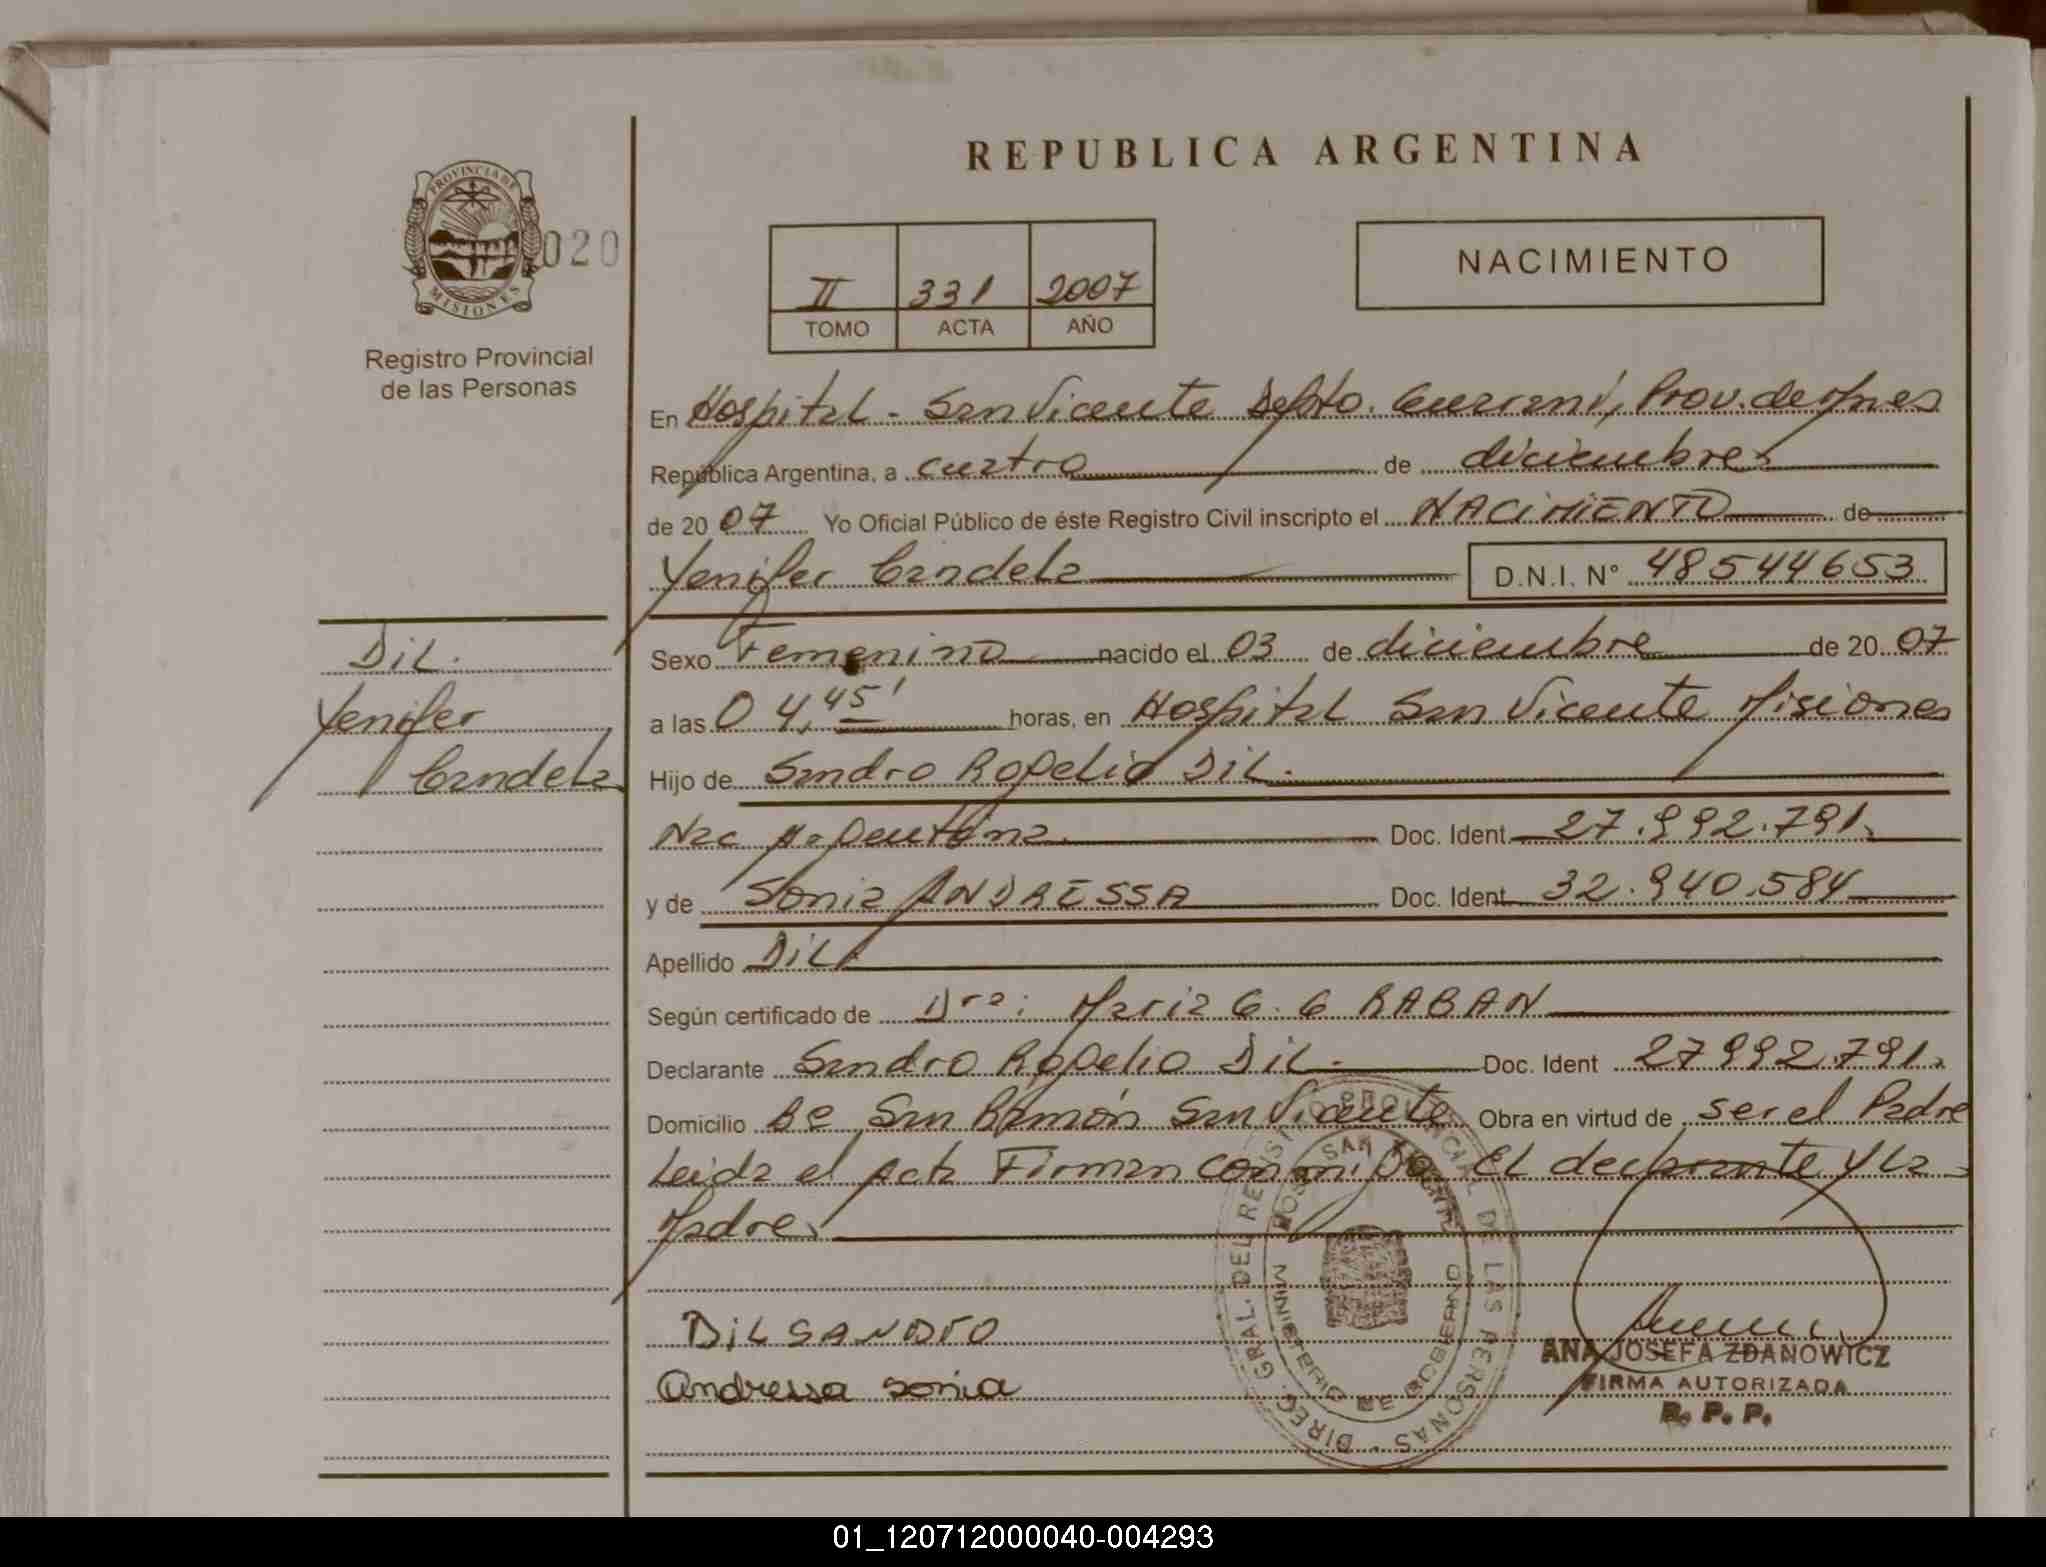 REPUBLICA ARGENTINA
PROVINCIA DE
MISIONES
020
Registro Provincial
de las Personas
II 331 2007
TOMO ACTA AÑO
NACIMIENTO
En Hospital - San Vicente Depto. Guaraní, Prov. de Mnes
República Argentina, a cuatro de diciembre
de 20 07 Yo Oficial Público de éste Registro Civil inscripto el NACIMIENTO de
Yenifer Candela D.N.I. N° 48544653
Dil.
Yenifer
Candela
Sexo Femenino nacido el 03 de diciembre de 20 07
a las 04,45' horas, en Hospital San Vicente Misiones
Hijo de Sandro Rogelio Dil.
Nac Argentina Doc. Ident 27.992.791
y de Sonia ANDRESSA Doc. Ident 32.940.584
Apellido Dil
Según certificado de Dra: Maria G. G RABAN
Declarante Sandro Rogelio Dil. Doc. Ident 27992.791
Domicilio San Ramón San Vicente Obra en virtud de ser el Padre
Leida el Acta Firman conmigo El declarante y La
Madre
DIL SANDrO
Andressa sonia
DIREC. GRAL. DEL REGISTRO PROVINCIAL DE LAS PERSONAS
HOSP. SAN VICENTE
MINISTERIO DE GOBIERNO
ANA JOSEFA ZDANOWICZ
FIRMA AUTORIZADA
R. P. P.
01_120712000040-004293